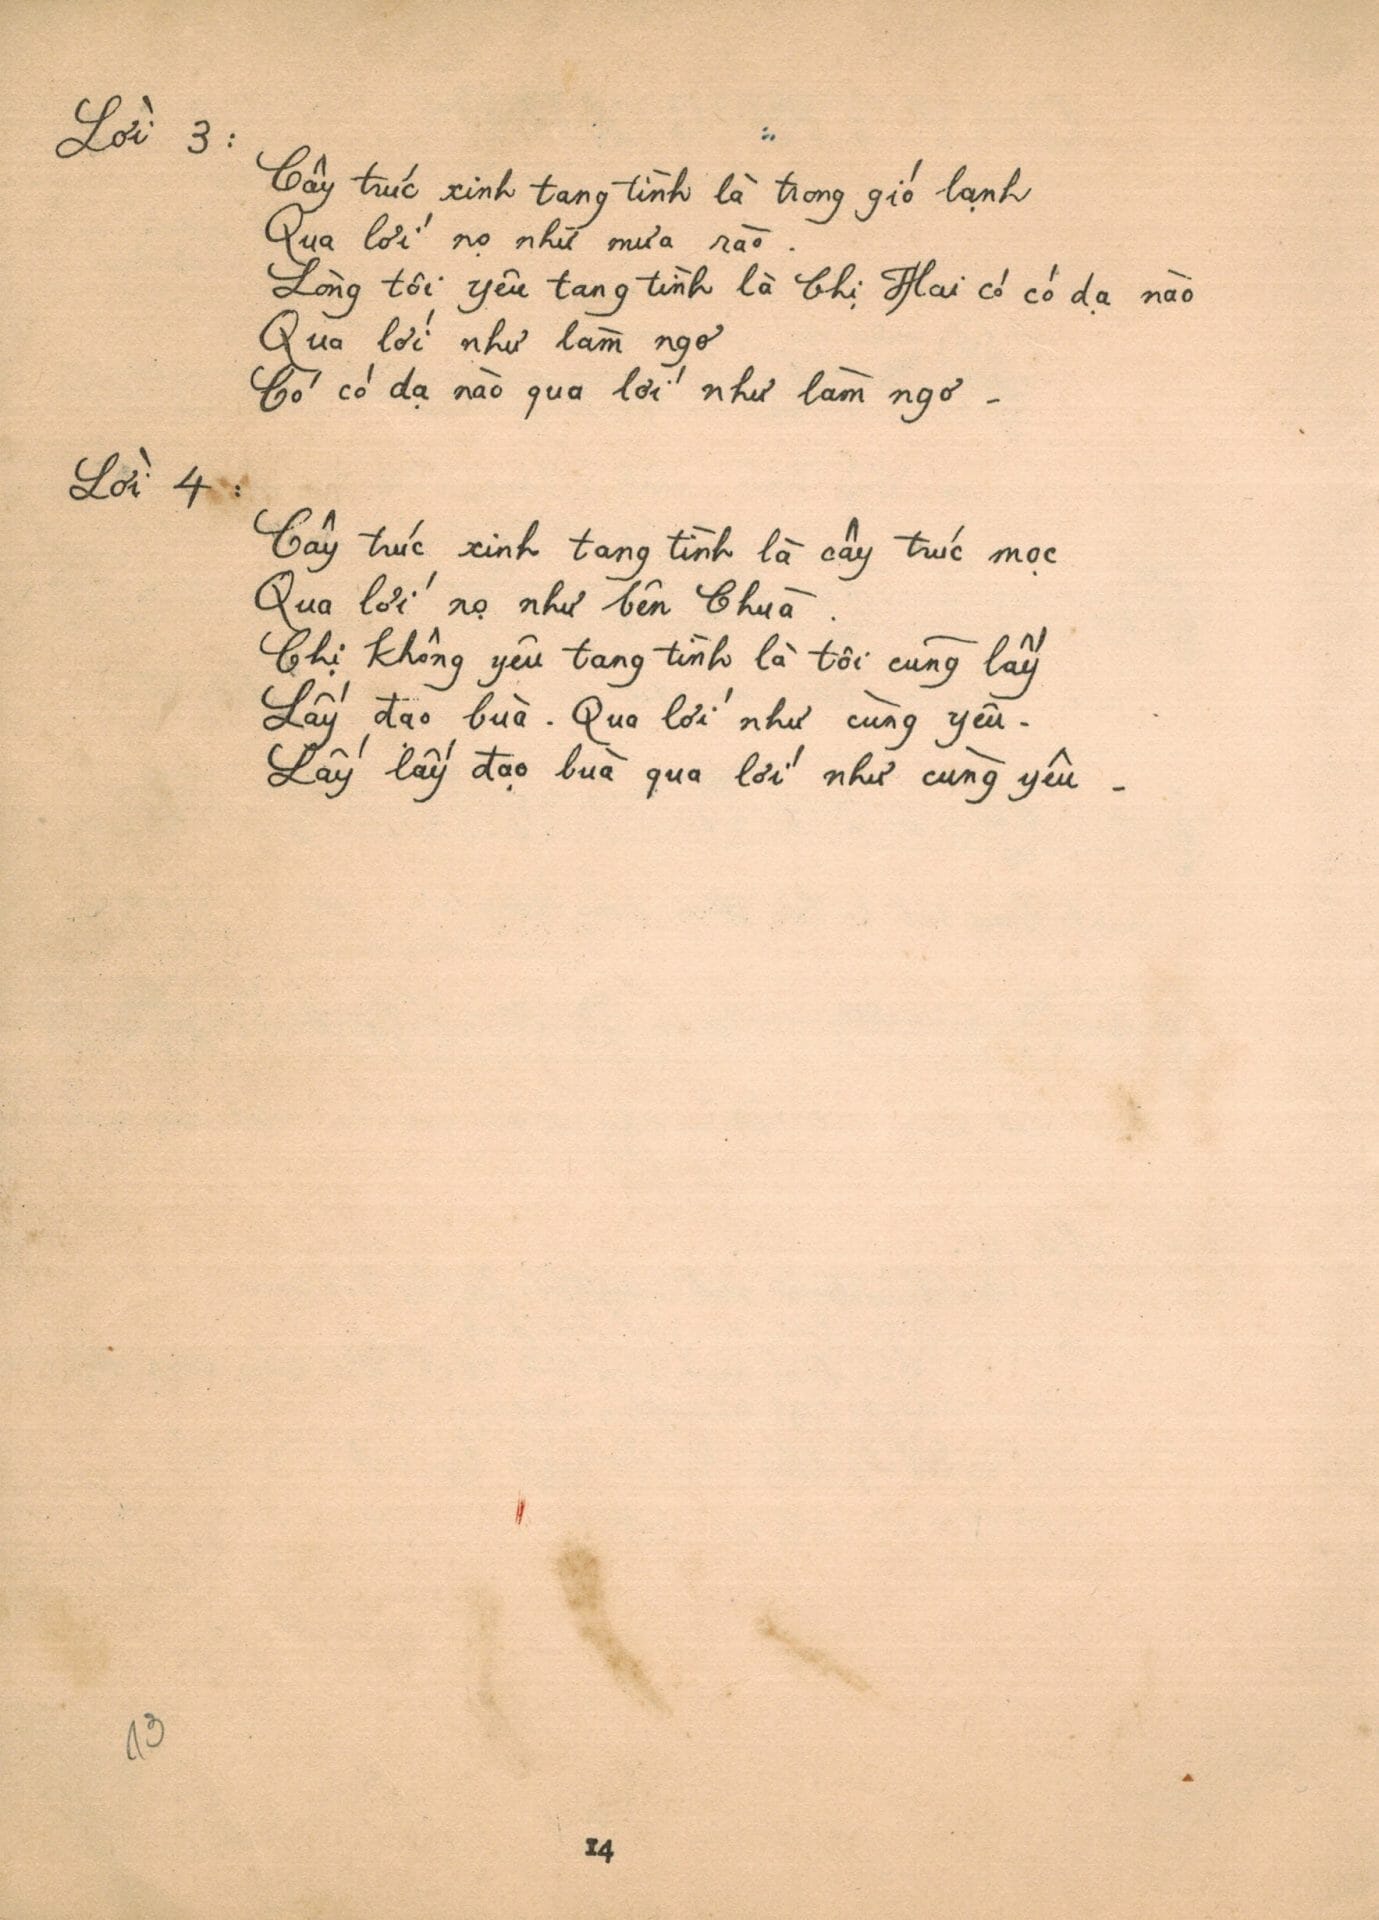 Lời 3 :
Cây trúc xinh tang tình là trong gió lạnh
Qua lới nọ như mưa rào .
Lòng tôi yêu tang tình là Chị Hai có có dạ nào
Qua lới như làm ngơ
Có có dạ nào qua lới như làm ngơ -
Lời 4 :
Cây trúc xinh tang tình là cây trúc mọc
Qua lới nọ như bên Chùa .
Chị không yêu tang tình là tôi cũng lấy
Lấy đạo bùa . Qua lới như cùng yêu -
Lấy lấy đạo bùa qua lới như cùng yêu -
13
14